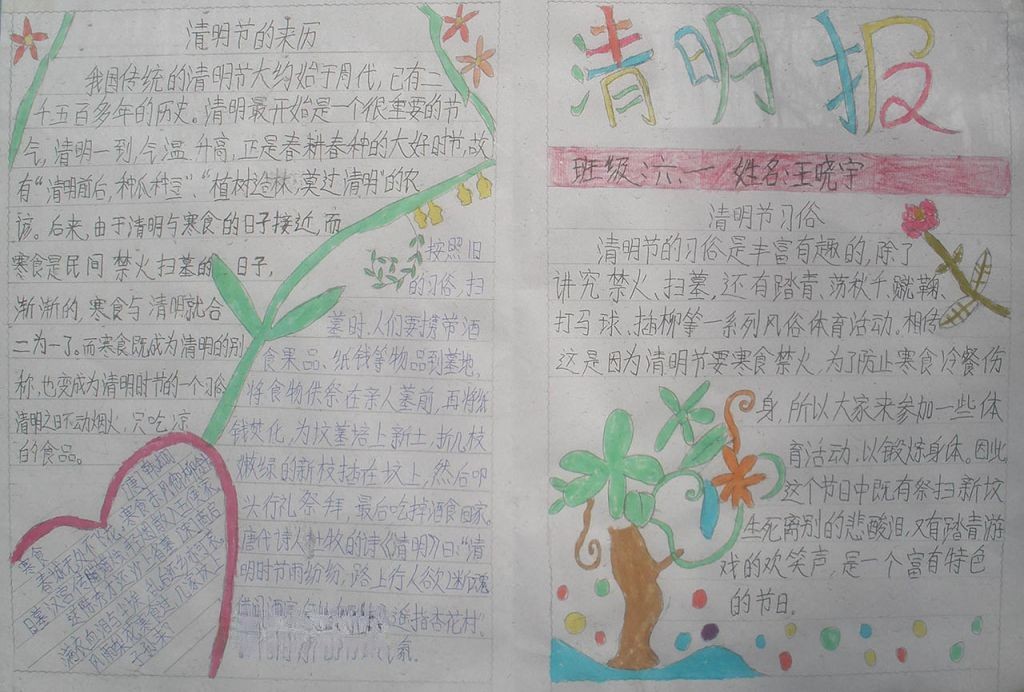 清明节的来历
我国传统的清明节大约始于周代,已有二
千五百多年的历史。清明最开始是一个很重要的节
气,清明一到,气温升高,正是春耕春种的大好时节,故
有“清明前后,种瓜种豆”、“植树造林,莫过清明”的农
谚。后来,由于清明与寒食的日子接近,而
寒食是民间禁火扫墓的日子,
渐渐的,寒食与清明就合
二为一了。而寒食既成为清明的别
称,也变成为清明时节的一个习俗
清明之日不动烟火,只吃凉
的食品。
按照旧
的习俗,扫
墓时,人们要携带酒
食果品、纸钱等物品到墓地,
将食物供祭在亲人墓前,再将纸
钱焚化,为坟墓培上新土,折几枝
嫩绿的新枝插在坟上,然后叩
头行礼祭拜,最后吃掉酒食回家。
唐代诗人杜牧的诗《清明》曰:“清
明时节雨纷纷,路上行人欲断魂
借问酒家 遥指杏花村”、
氛。
清明报
班级:六、一 姓名:王晓宇
清明节习俗
清明节的习俗是丰富有趣的,除了
讲究禁火、扫墓,还有踏青、荡秋千、蹴鞠、
打马球、插柳等一系列风俗体育活动。相传
这是因为清明节要寒食禁火,为了防止寒食冷餐伤
身,所以大家来参加一些体
育活动,以锻炼身体。因此,
这个节日中既有祭扫新坟
生死离别的悲酸泪,又有踏青游
戏的欢笑声,是一个富有特色
的节日。